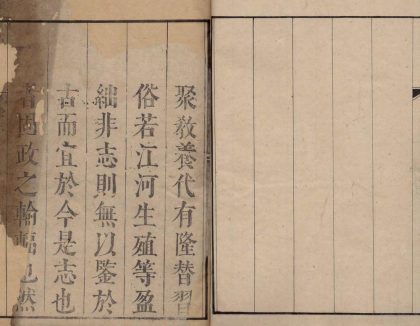 聚教養代有隆替習
俗若江河生殖等盈
絀非志則無以鑒於
古而宜於今是志也
者固政之輪輻也然